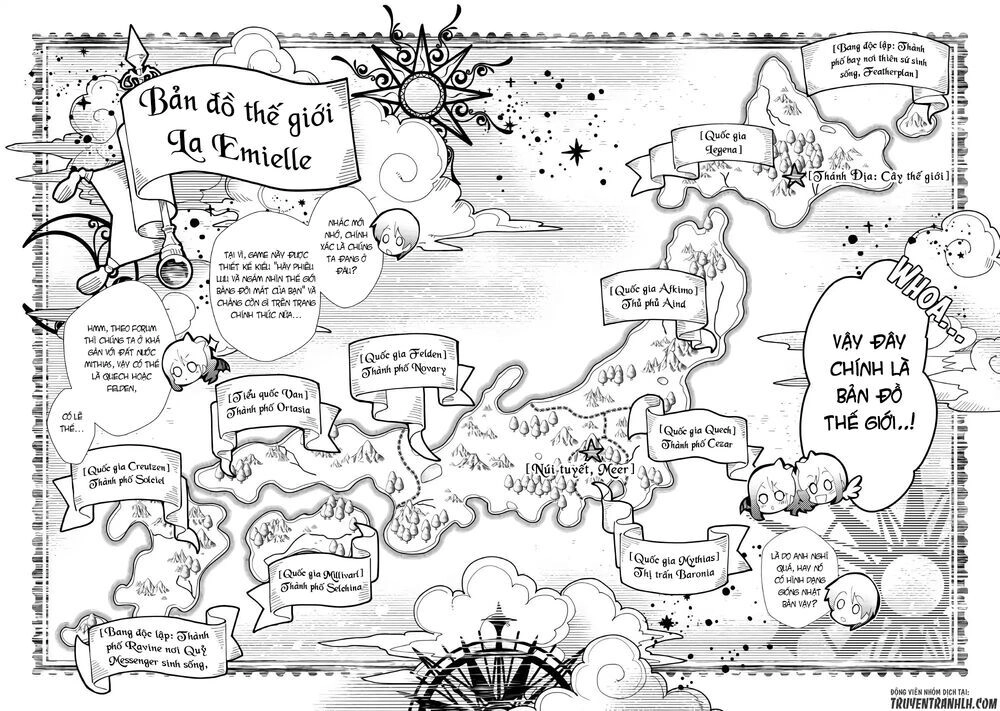 Bản đồ thế giới
La Emielle
[Bang độc lập: Thành
phố bay nơi thiên sứ sinh
sống, Featherplan]
[Quốc gia
Legena]
[Thánh Địa: Cây thế giới]
NHẮC MỚI
NHỚ, CHÍNH
XÁC LÀ CHÚNG
TA ĐANG Ở
ĐÂU?
TẠI VÌ, GAME NÀY ĐƯỢC
THIẾT KẾ KIỂU "HÃY PHIÊU
LƯU VÀ NGẮM NHÌN THẾ GIỚI
BẰNG ĐÔI MẮT CỦA BẠN" VÀ
CHẲNG CÒN GÌ TRÊN TRANG
CHÍNH THỨC NỮA...
HMM, THEO FORUM
THÌ CHÚNG TA Ở KHÁ
GẦN VỚI ĐẤT NƯỚC
MITHIAS, VẬY CÓ THỂ
LÀ QUECH HOẶC
FELDEN,
CÓ LẼ
THẾ...
WHOA...
VẬY ĐÂY
CHÍNH LÀ
BẢN ĐỒ
THẾ GIỚI..!
[Quốc gia Afkimo]
Thủ phủ Aind
[Quốc gia Felden]
Thành phố Novary
[Tiểu quốc Van]
Thành phố Ortasia
[Quốc gia Quech]
Thành phố Cezar
[Quốc gia Creutzen]
Thành phố Solciel
[Núi tuyết, Meer]
[Quốc gia Mythias]
Thị trấn Baronia
[Quốc gia Millivarl]
Thành phố Selchina
LÀ DO ANH NGHĨ
QUÁ, HAY NÓ
CÓ HÌNH DẠNG
GIỐNG NHẬT
BẢN VẬY?
[Bang độc lập: Thành
phố Ravine nơi Quỷ
Messenger sinh sống,
ĐỘNG VIÊN NHÓM DỊCH TẠI:
TRUYENTRANHLH.COM